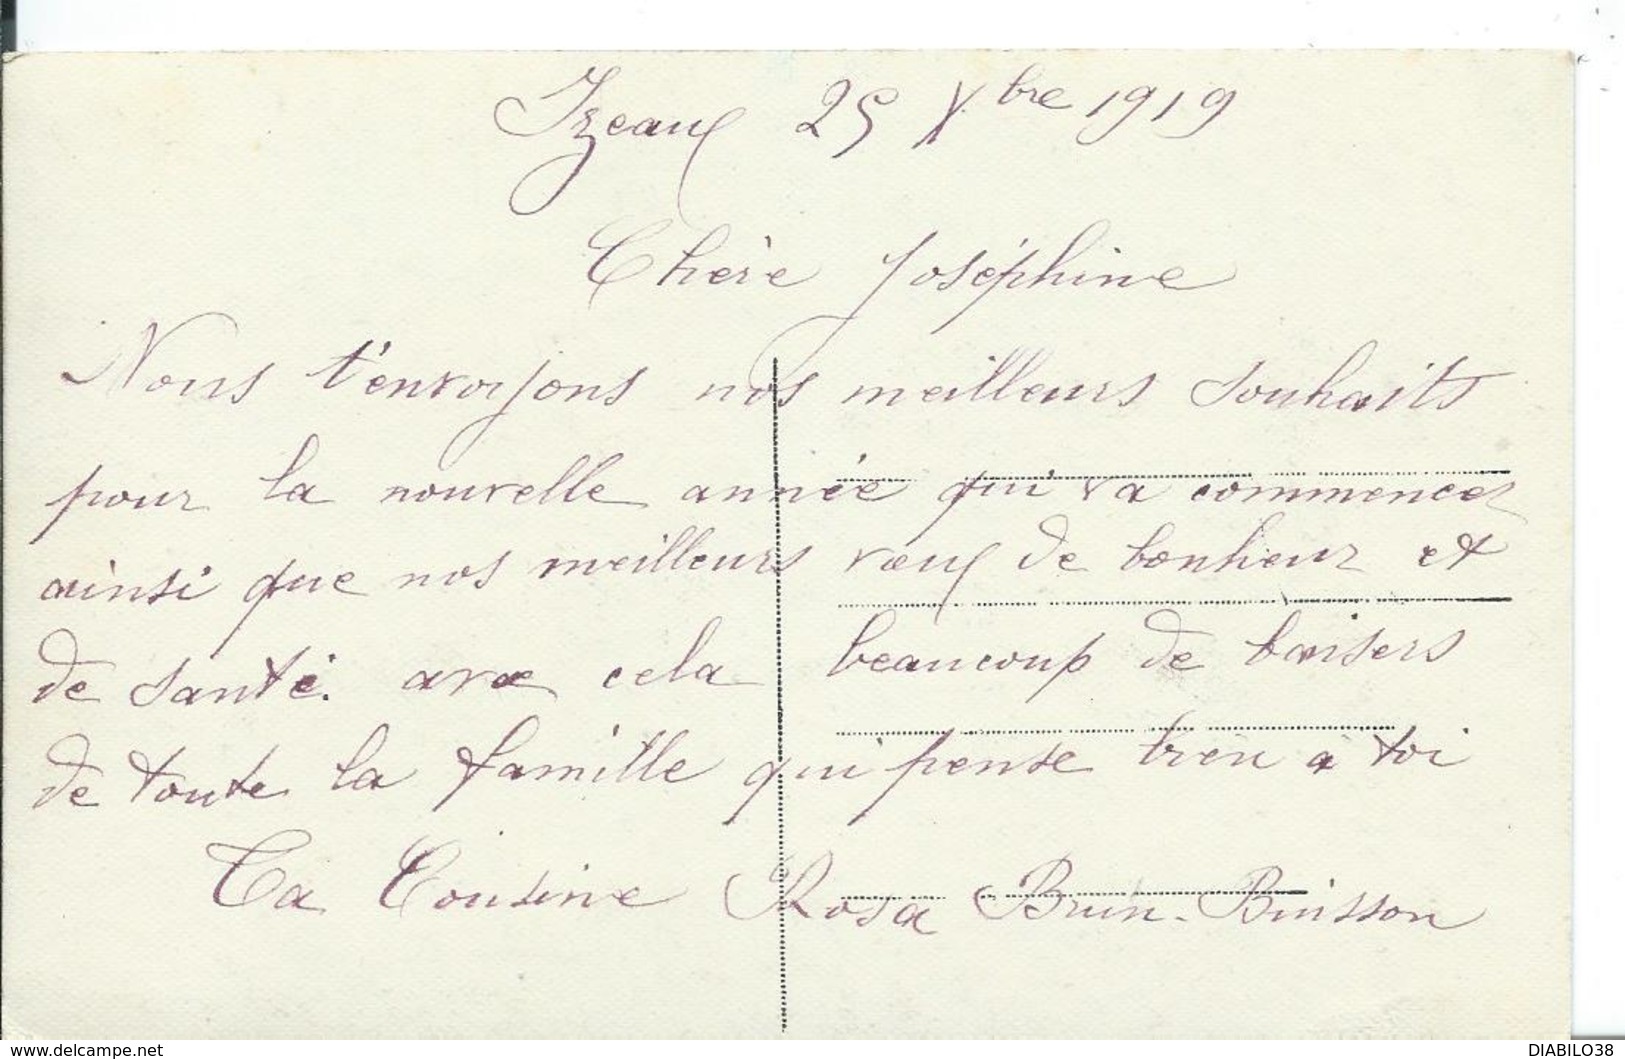 Izeaux 25 Xbre 1919
Chère Joséphine
Nous t'envoyons nos meilleurs souhaits
pour la nouvelle année qui va commencer
ainsi que nos meilleurs vœux de bonheur et
de santé. avec cela beaucoup de baisers
de toute la famille qui pense bien à toi
Ta Cousine Rosa Brun-Buisson
www.delcampe.net
DIABILO38